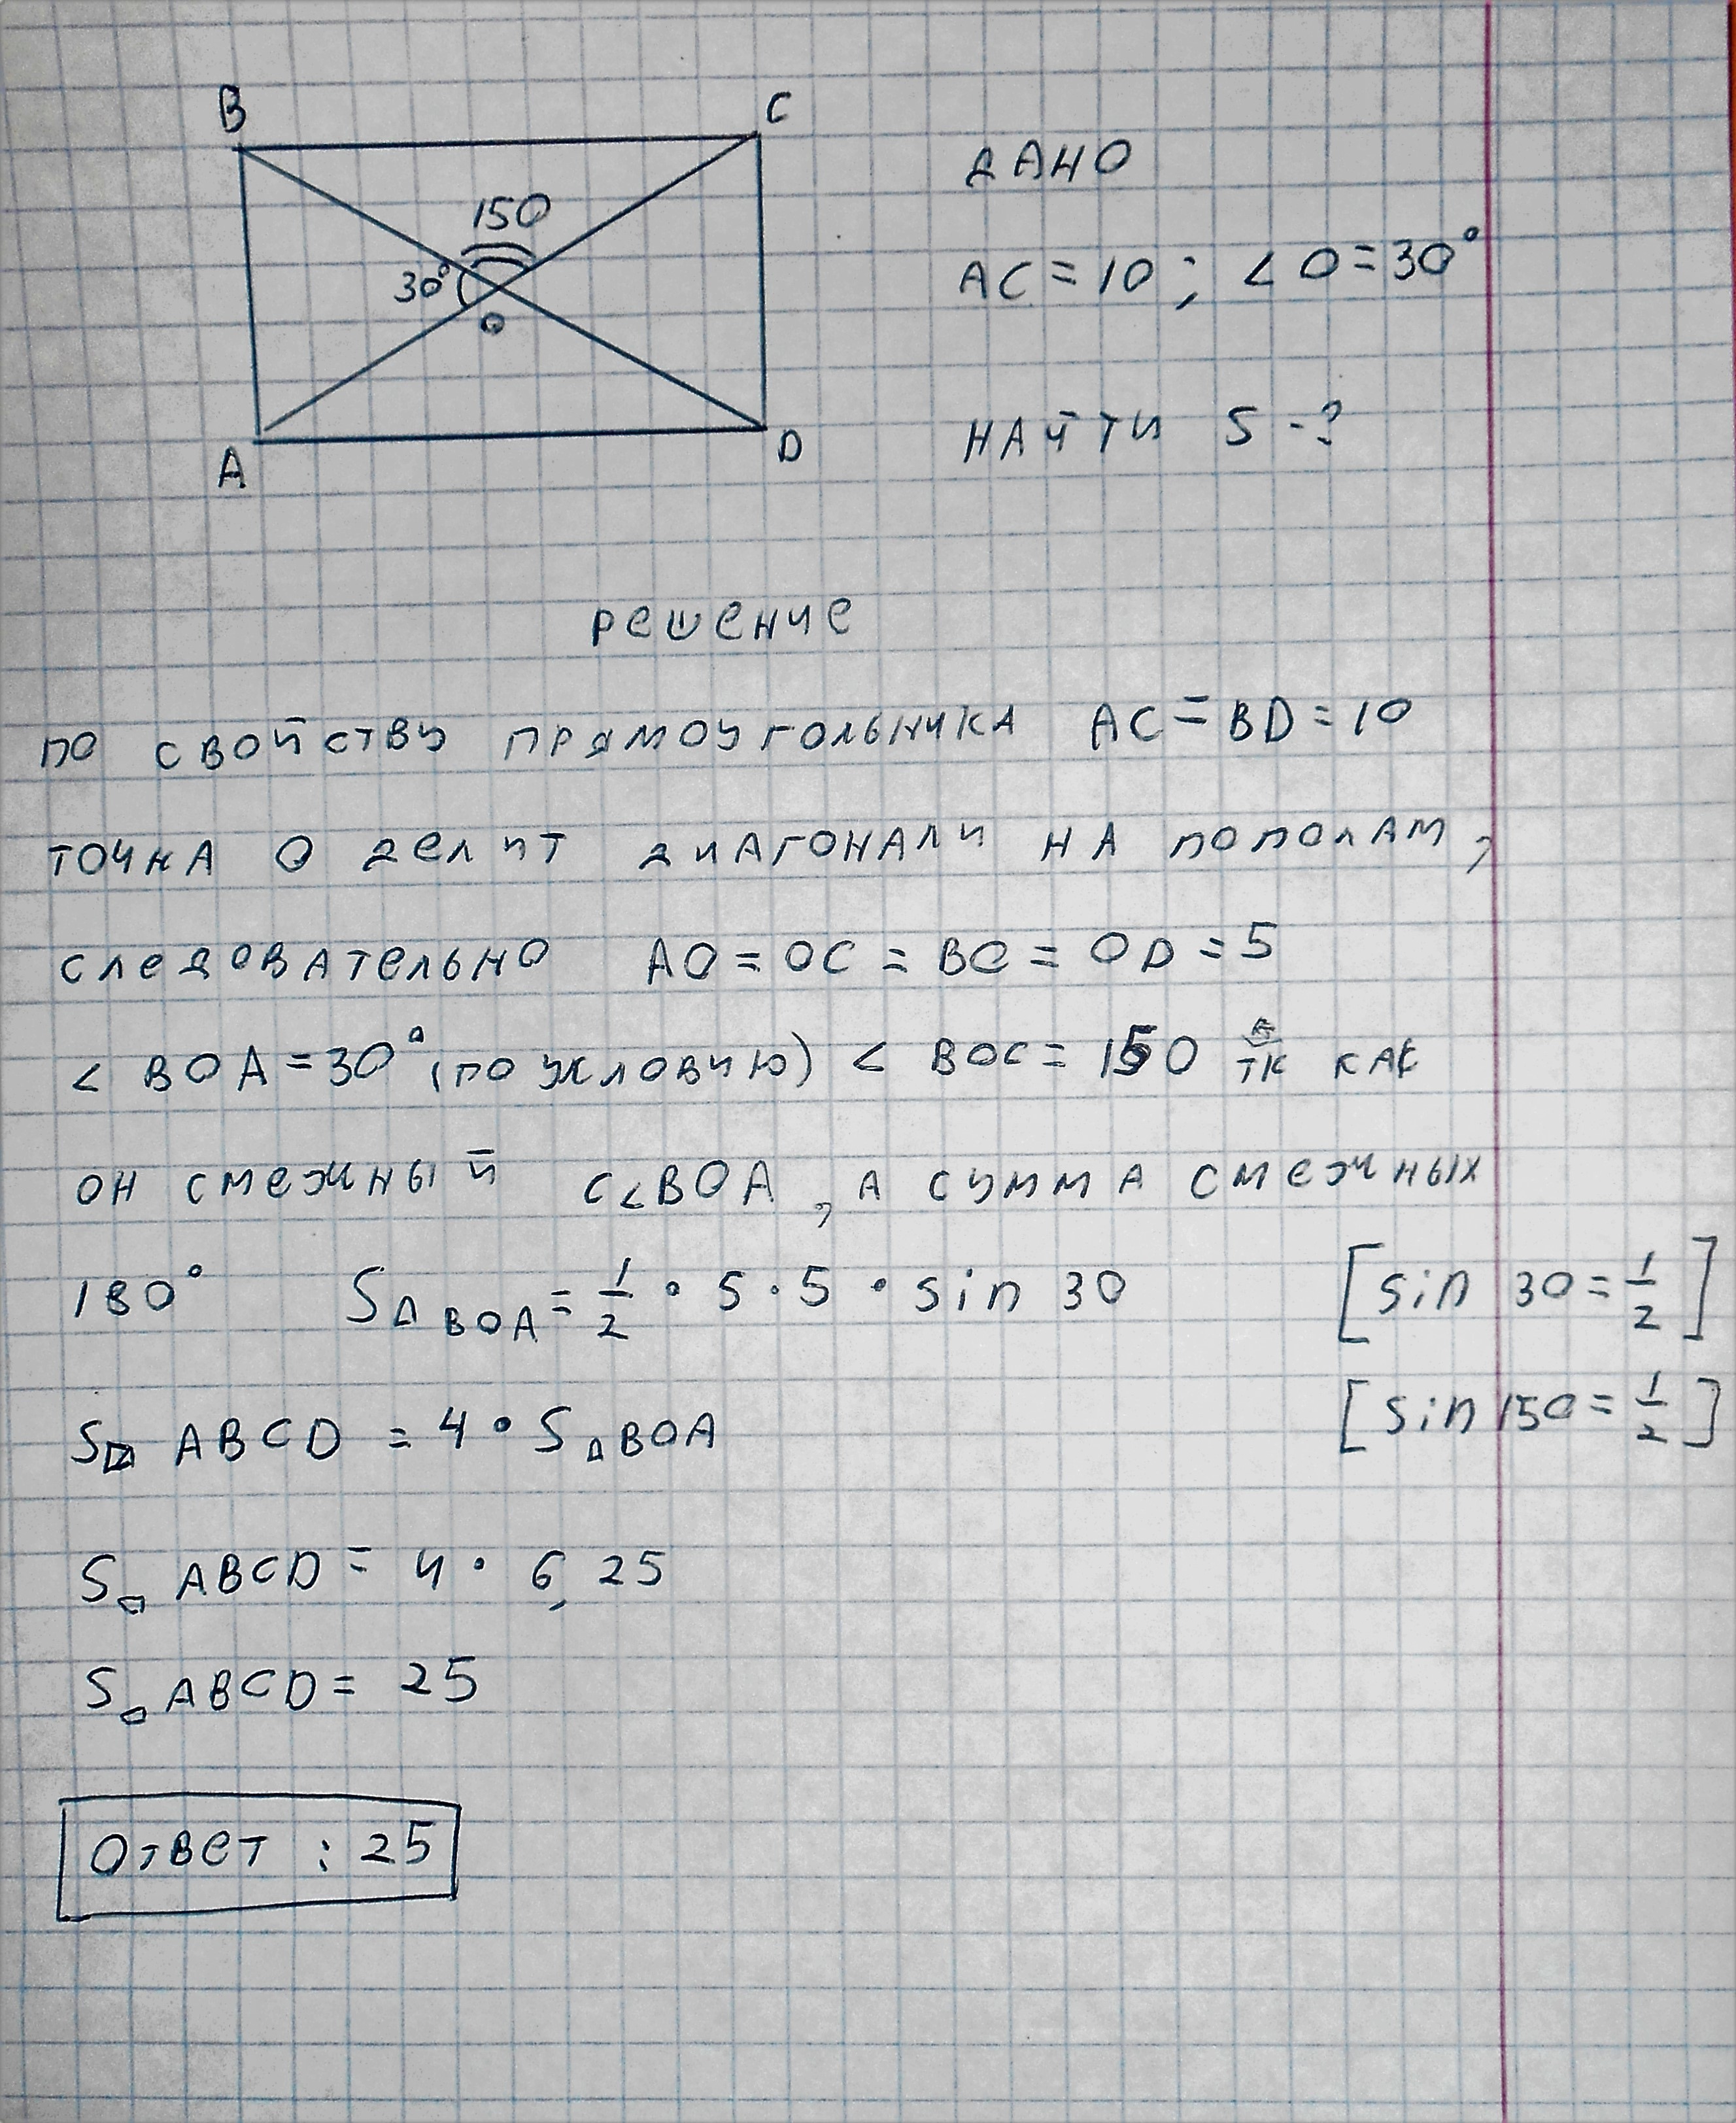 B
C
150
30°
O
A
D
ДАНО
AC = 10 ; ∠O = 30°
НАЙТИ S - ?
РЕШЕНИЕ
ПО СВОЙСТВУ ПРЯМОУГОЛЬНИКА AC = BD = 10
ТОЧКА О ДЕЛИТ ДИАГОНАЛИ НА ПОПОЛАМ,
СЛЕДОВАТЕЛЬНО AO = OC = BO = OD = 5
∠ BOA = 30° (ПО УСЛОВИЮ) ∠ BOC = 150 ТК КАК
ОН СМЕЖНЫЙ С ∠BOA, А СУММА СМЕЖНЫХ
180° S△BOA = 1/2 · 5 · 5 · sin 30 [sin 30 = 1/2]
S▭ ABCD = 4 · S△BOA [sin 150 = 1/2]
S▭ ABCD = 4 · 6,25
S▭ ABCD = 25
ОТВЕТ : 25